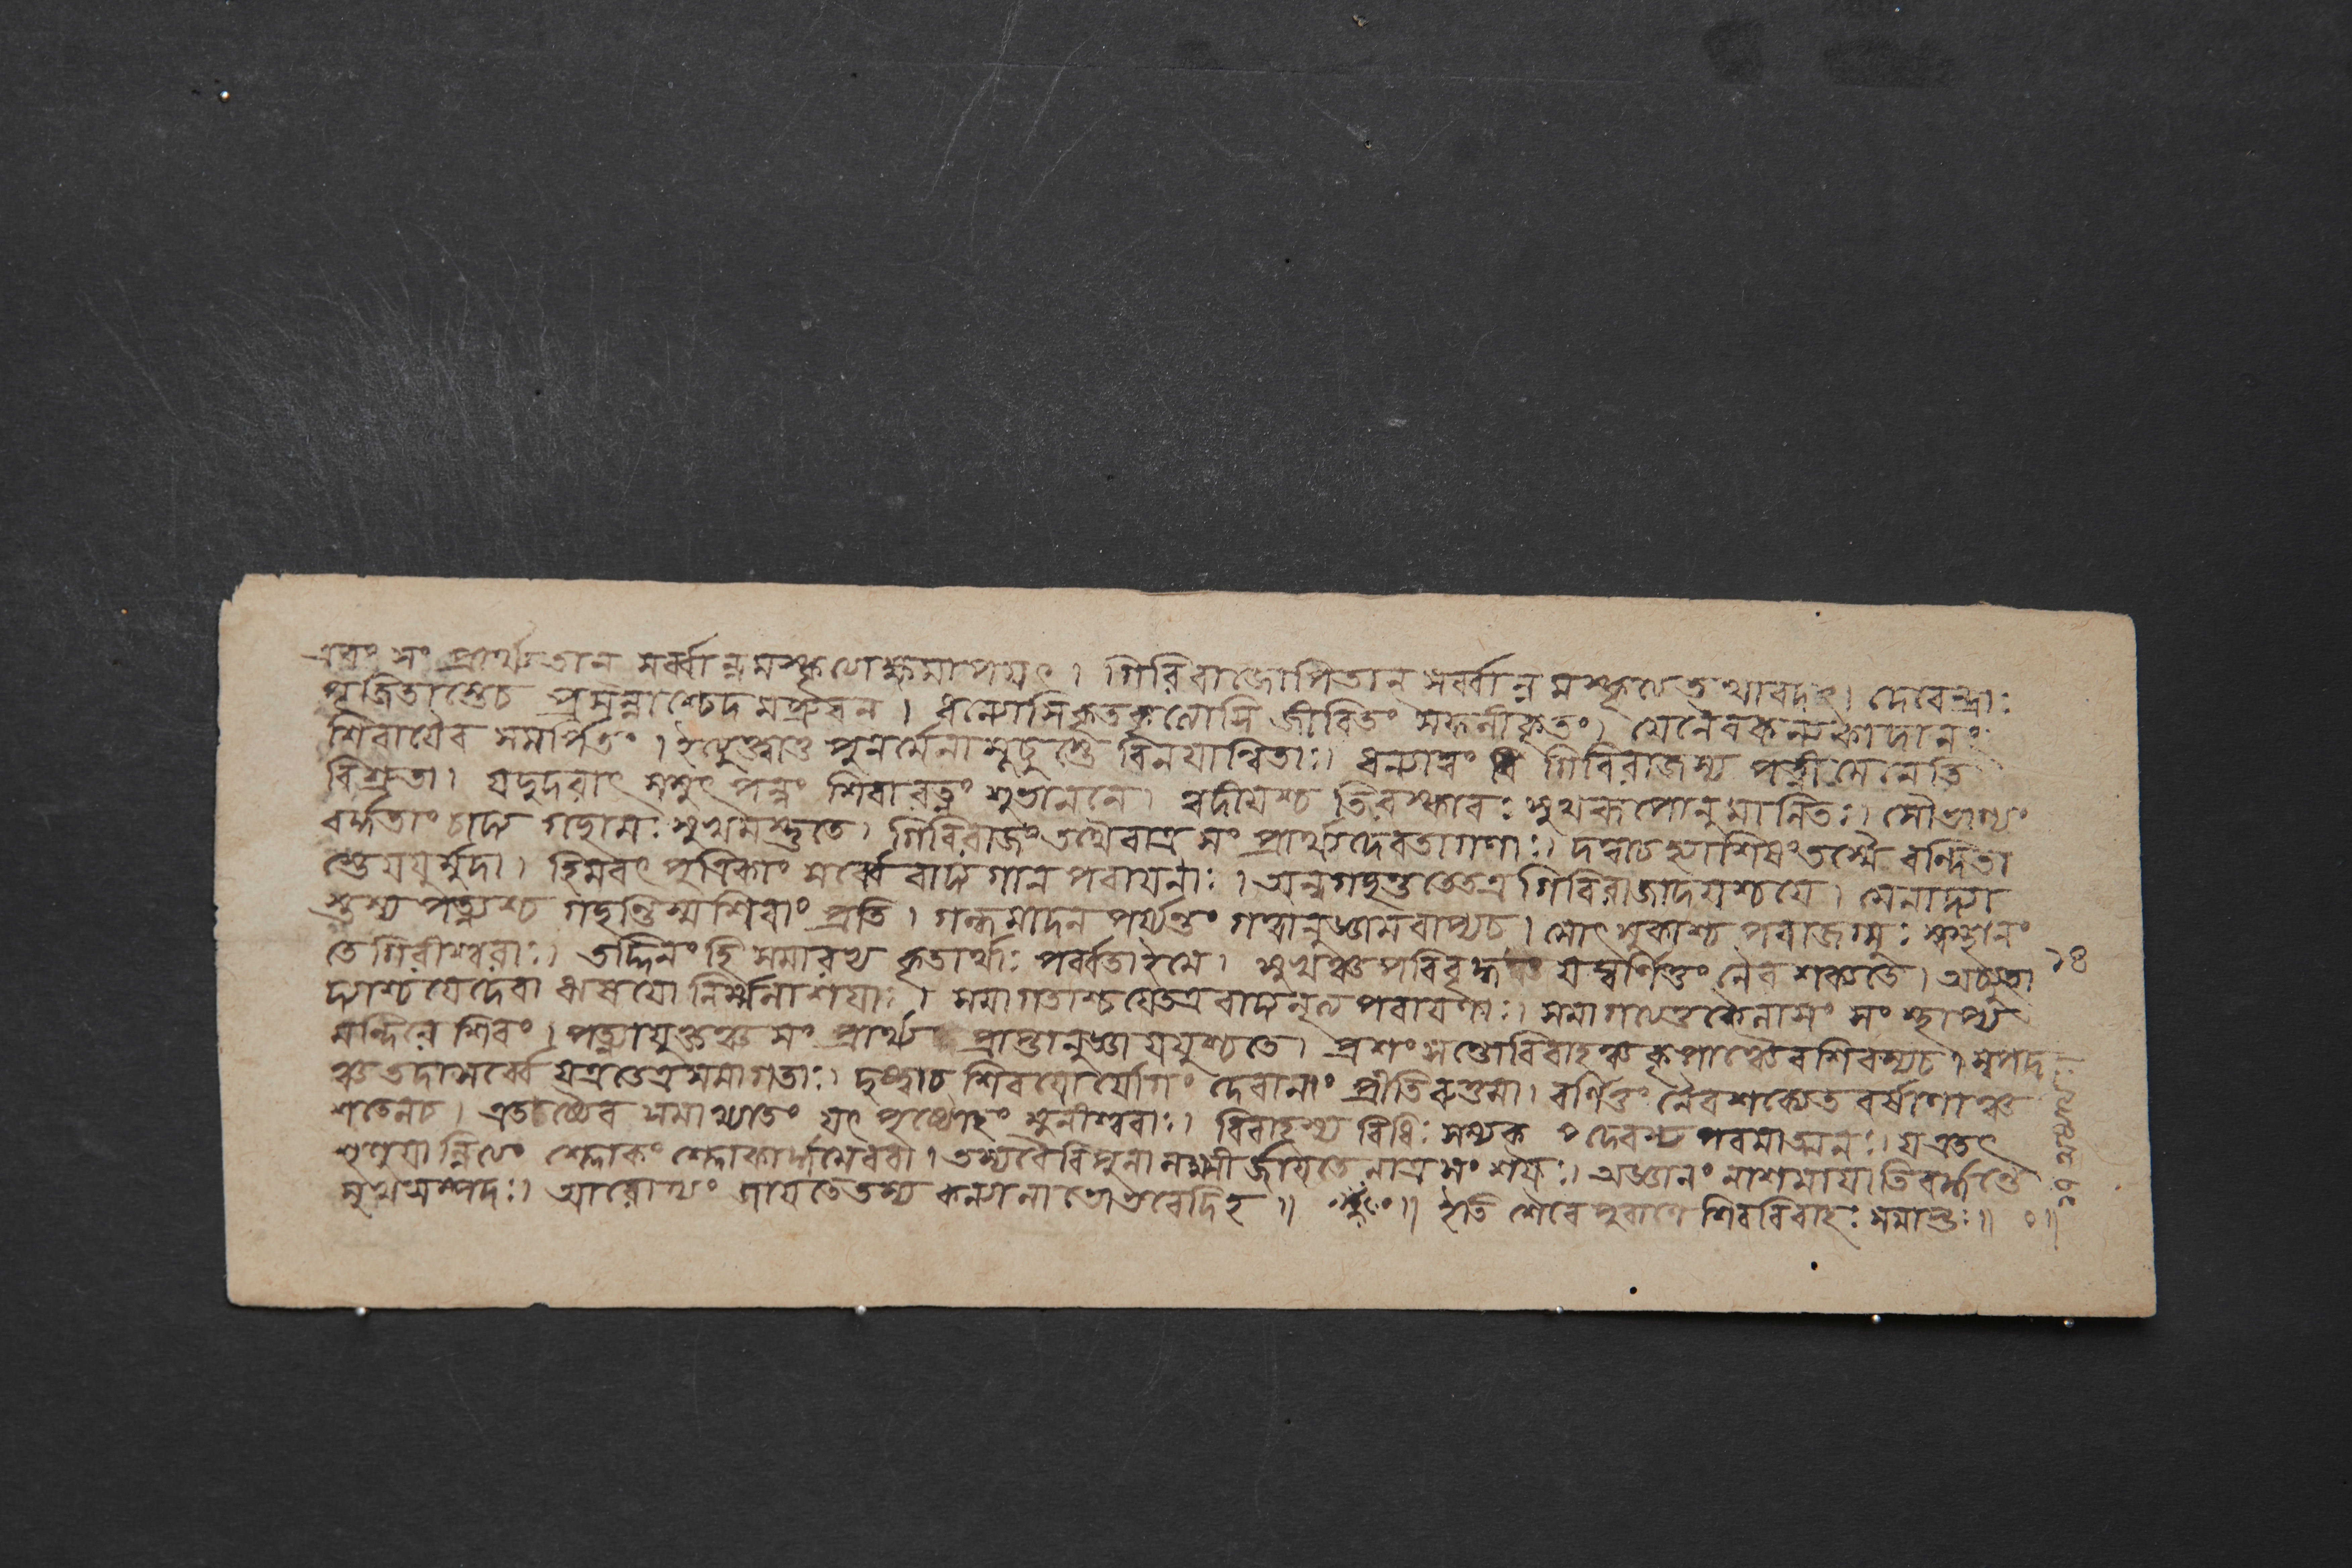 এবং সং প্রার্থ্য তান সর্ব্বান্নমস্কৃত্যেক্ষমাপয়ৎ। গিরিরাজোপি তান সর্ব্বান্নমস্কৃত্য তথাবদৎ। দেবেন্দ্রাঃ
পূজিতাস্তেচ প্রসন্নাশ্চেদমব্রুবন। ধন্যোসি কৃতকৃত্যোসি জীবিতং সফলীকৃতং। যেনৈব কন্যকাদানং
শিবায়ৈব সমর্পিতং। ইত্যুক্ত্বাথ পুনর্মেনামূচুস্তে বিনয়ান্বিতাঃ। ধন্যাত্বং গিরিরাজস্য পত্নী মেনেতি
বিশ্রুতা। যদুদরাৎ সমুৎপন্নং শিবারত্নং শুভাননে। ত্বদীয়শ্চ তিরস্কারঃ সুখরূপোনুমানিতঃ। সৌভাগ্যং
বর্দ্ধতাং চাদ্য গচ্ছামঃ সুখমশ্নুতে। গিরিরাজং তথৈবাত্র সং প্রার্থ্য দেবতাগণাঃ। দত্ত্বাচ আশিষং তস্মৈ বন্দিতা
স্তে যযুর্মুদা। হিমবৎ পুত্রিকাং সর্ব্বে বাদ্য গান পরায়নাঃ। অন্বগচ্ছন্ততে তত্র গিরিরাজাদয়শ্চ যে। মেনাদ্যা
স্তস্য পত্ন্যশ্চ গচ্ছন্তিস্ম শিবাং প্রতি। গন্ধমাদন পর্য্যন্তং গত্বানুজ্ঞামবাপ্যচ। সোৎসুকাশ্চ পরাজগ্মুঃ স্বস্থানং
তে গিরীশ্বরাঃ। তদ্দিনং হি সমারভ্য কৃতার্থাঃ পর্ব্বতা ইমে। সুখঞ্চ পরিবৃদ্ধং যদ্বর্ণিতুং নৈব শক্যতে। অচ্যুতা
দ্যাশ্চ যে দেবা ঋষয়ো নির্ম্মলাশয়াঃ। সমাগতাশ্চ যে তত্র বাদ্যনৃত্য পরায়ণাঃ। সমাগত্যতু কৈলাসং সং স্থাপ্য
মন্দিরে শিবং। পত্ন্যাযুক্তঞ্চ সং প্রার্থ্য প্রাপ্তানুজ্ঞা যযুশ্চতে। প্রশংসন্তো বিবাহঞ্চ কৃপাঞ্চৈব শিবস্যচ। স্বপদ
ঞ্চ তদা সর্ব্বে যত্র তেত্র সমাগতাঃ। দৃষ্ট্বাচ শিবয়োর্যোগং দেবানাং প্রীতিরুত্তমা। বর্ণিতুং নৈব শক্যেত বর্ষাণাঞ্চ
শতেনচ। এতচ্চৈব সমাখ্যাতং যৎ পৃষ্টোহং মুনীশ্বরাঃ। বিবাহস্য বিধিঃ সম্যক দেবস্য পরমাত্মনঃ। য এতৎ
শৃণুয়ান্নিত্যং শ্লোকং শ্লোকার্দ্ধমেববা। তস্য বৈ বিপুলা লক্ষ্মী র্জায়তে নাত্র সং শয়ঃ। অজ্ঞানং নাশমায়াতি বর্দ্ধন্তে
সুখসম্পদঃ। আরোগ্যং জায়তে তস্য কন্যালাভো ভবেদিহ॥ ইতি শৈবে পুরাণে শিববিবাহঃ সমাপ্তঃ॥ ০॥
১৪